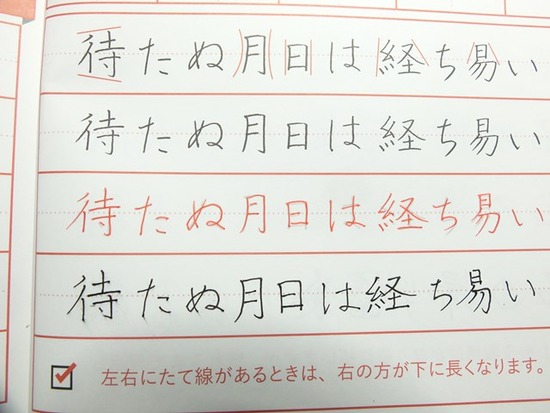 待たぬ月日は経ち易い
待たぬ月日は経ち易い
待たぬ月日は経ち易い
待たぬ月日は経ち易い
左右にたて線があるときは、右の方が下に長くなります。